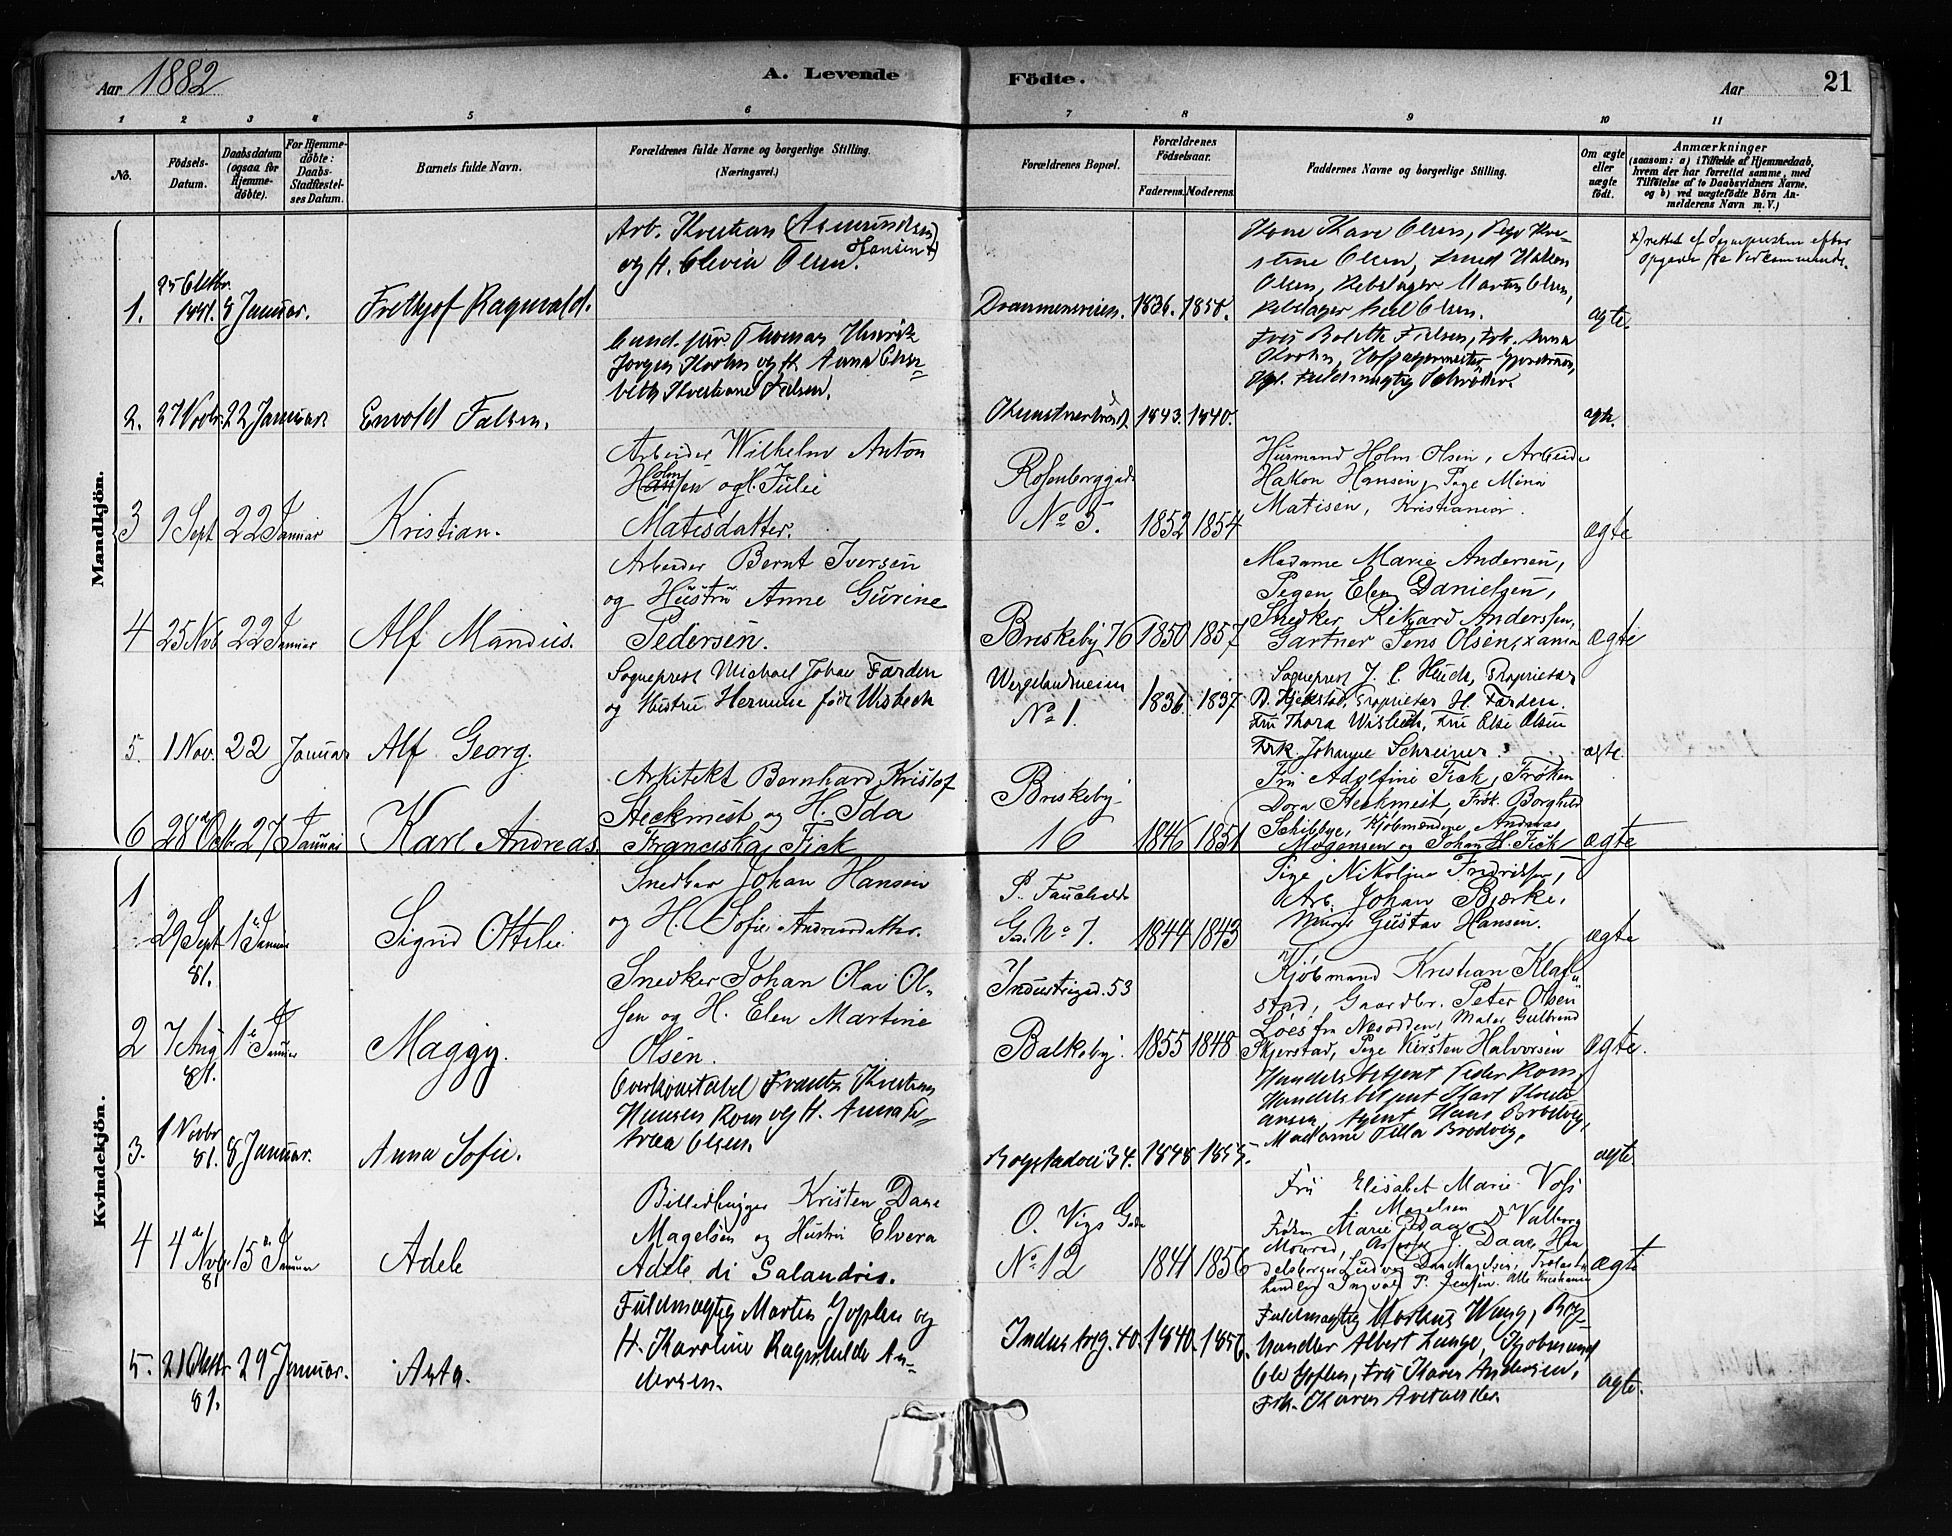 Aar 1882
A. Levende
Födte.
Aar
21
1 2 3 4 5 6 7 8 9 10 11
No.
Födsels-
Datum.
Daabsdatum
(ogsaa for
Hjemme-
döbte).
For Hjemme-
döbte:
Daabs-
Stadfæstel-
ses Datum.
Barnets fulde Navn.
Forældrenes fulde Navne og borgerlige Stilling.
(Næringsvei.)
Forældrenes Bopæl.
Forældrenes
Födselsaar.
Faderens. Moderens.
Faddernes Navne og borgerlige Stilling.
Om ægte
eller
uægte
födt.
Anmærkninger
(saasom: a) i Tilfælde af Hjemmedaab,
hvem der har forrettet samme, med
Tilföielse af to Daabsvidners Navne,
og b) ved uægtefödte Börn An-
melderens Navn m. V.)
Mandkjön.
1.
25 Oktbr.
1881.
8 Januar.
Frithjof Ragnvald.
Arb. Kristian (Asmundsen)
Hansen x)
og H. Olevia Olsen.
Drammensveien.
1836. 1850.
Kone Kare Olsen, Pige Kri-
stine Olsen, Smed Hakon
Olsen, Rebslager Martin Olsen,
Rebslager Olsen.
ægte.
x) rettet af Sognepresten efter
Opgave fra Vedkommende.
2.
27 Novbr.
22 Januar
Envold Falsen.
Cand. jur. Thomas Henrik
Jørgen Krohn og H. Anna Elisa-
beth Kristiane Falsen.
1843. 1840.
Frk. Anna
Krohn,
Fuldmægtig Schrøder.
ægte.
3
9 Sept
22 Januar
Kristian.
Arbeider Wilhelm Anton
Holm
Hansen og H. Julie
Matisdatter.
Rosenborggade
No 5.
1852 1854
Husmand Holm Olsen, Arbeider
Hakon Hansen, Pige Mina
Matisen, Kristiania.
ægte
4
25 Nov
22 Januar
Alf Mandius.
Arbeider Bernt Iversen
og Hustru Anne Gurine
Pedersen.
Briskeby 76
1850 1857
Madame Marie Andersen,
Pigen Elen Danielsen,
Snedker Rikard Anderssen,
Gartner Jens Olsen, xania
ægte
5.
1 Nov.
22 Januar
Alf Georg.
Sogneprest Michael Johan Færden
og Hustru Hermine født Wisbech
Wergelandsveien
No 1.
1836. 1837
Sogneprest J. C. Proprietær
Proprietær H. Færden.
Fru Thora Wisbech, Fru Else Olsen
Frk. Johanne Schreiner.
ægte.
6
28de Octb
27 Januar
Karl Andreas.
Arkitekt Bernhard Kristof
Steckmest og H. Ida
Franciska Fick
Briskeby
16
1846 1851
Fru Adolfine Fick, Frøken
Dora Steckmest, Frøk. Borghild
Schibbye, Kjöbmændene Andreas
Mogensen og Johan H. Fick
ægte
Kvindekjön.
1
29 Sept
81.
1ste Januar
Sigrid Ottilie
Snedker Johan Hansen
og H. Sofie Andreasdatter.
P. Fauchalds
Gd. No 7.
1844 1843
Pige Nikoline Fredriksen,
Arb. Johan Bjerke,
Murer Gustav Hansen.
ægte
2
7 Aug
81.
1ste Januar
Maggy.
Snedker Johan Olai Ol-
sen og H. Elen Martine
Olsen.
Industrigd. 53
Balkeby.
1855 1848
Kjöbmand Kristian Klaf-
stad, Gaardbr. Peter Olsen
Loes fra Nesodden, Maler Gulbrand
Skjerstad, Pige Kirsten Halvorsen
ægte.
3.
1 Novbr
81.
8 Januar.
Anna Sofie.
Overkonstabel Frantz Kristian
Hansen Rom og H. Anna Pe-
traa Olsen.
Bogstadvei 34.
1848. 1855.
Handelsbetjent Peder Rom,
Handelsbetjent Karl Kristi-
ansen, Agent Hans Brodvig,
Madame Olla Brodvig.
ægte.
4
4de Novbr
81
15de Januar
Adele
Billedhugger Kristen Daae
Magelsen og Hustru Elvera
Adele di Salandris.
O. Vigs Gade
No 12
1841 1856
Fru Elisabet Marie Voss
f. Magelsen
Frøken Marie Daae, Valborg
Monrad, J. Daae, Han-
delsborger Ludvig Daae Magelsen, Trælast-
handler Ingvald P. Jensen. Alle Kristiania
ægte
5.
21 Oktbr
81.
29 Januar.
Asta.
Fuldmægtig Morten Goplen og
H. Karoline Ragnhilde An-
dersen.
Industrig. 40.
1840. 1856.
Fuldmægtig Markus Wang, Bog-
handler Albert Lange, Kjøbmand
Ole Goplen, Fru Karen Andersen,
Frk. Karen
ægte.